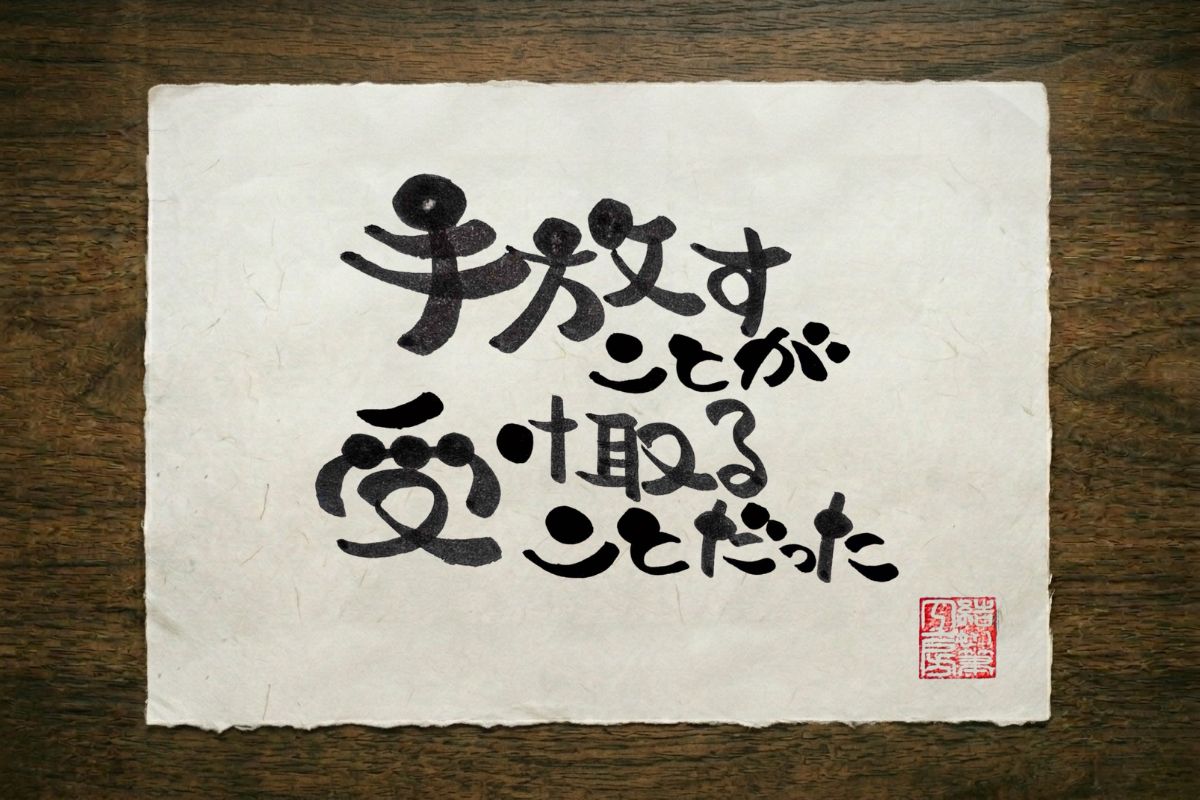 手放す
ことが
受け取る
ことだった